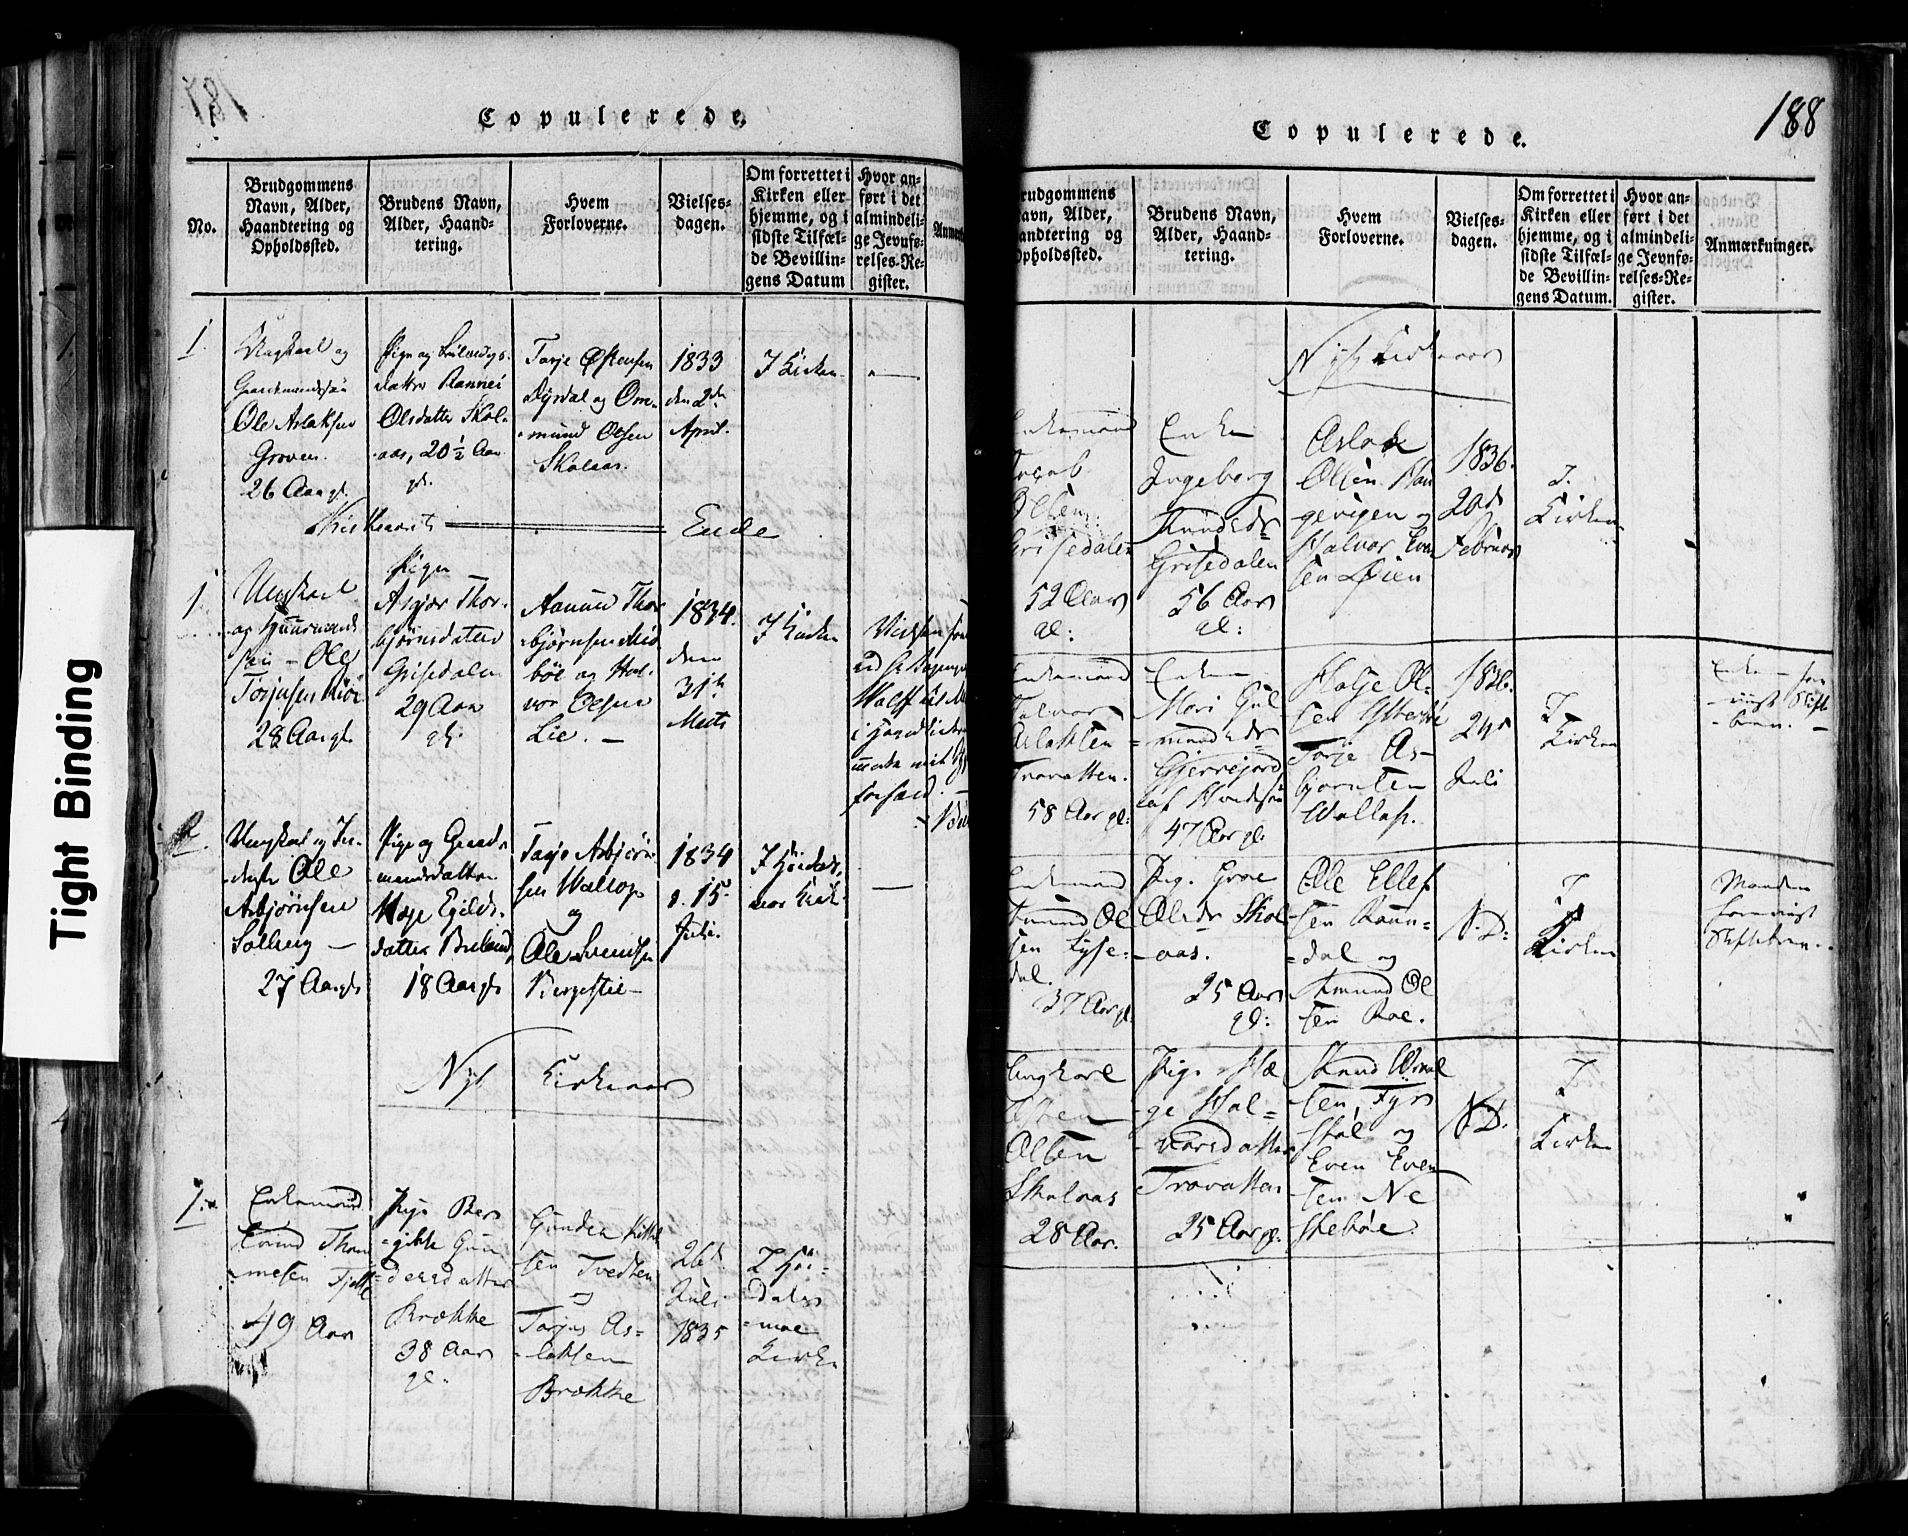 Tight Binding
Copulerede.
No.
Brudgommens
Navn, Alder,
Haandtering og
Opholdssted.
Brudens Navn,
Alder, Haand-
tering.
Hvem
Forloverne.
Vielses-
dagen.
Om forrettet i
Kirken eller
hjemme, og i
sidste Tilfæl-
de Bevillin-
gens Datum
Hvor an-
ført i det
almindeli-
ge Jevnfø-
relses-Re-
gister.
1.
Ungkarl og
Gaardmandssøn
Ole Aslaksen
Groven.
26 Aar gl.
Pige og
datter Rannei
Olsdatter Skol-
aas, 20½ Aar
gl.
Tarje Østensen
Dyrdal og Om-
mund Olsen
Skolaas.
1833
den 2den
April.
I Kirken
Kirkeaarets Ende
1
Ungkarl
og Huusmands
søn - Ole
Torjusen
28 Aar gl.
Pigen
Asgjær Thor-
bjørnsdatter
Grisedalen
29 Aar
gl.
Aanun Thor
bjørnsen Mid
böe og Hal-
vor Olsen
Lie. -
1834.
den
31te
Marts
I Kirken
2.
Ungkarl og In-
derste Ole
Asbjørnsen
Solberg -
27 Aar gl.
Pige og Gaard-
mandsdatter
Hæge Egilds-
datter Breland,
18 Aar gl.
Tarje Asbjörn
sen Wallop
og
Ole Svendsen
Bergstie-
1834
d. 15d
Juli.
I Höidals-
moe Kirk-
Nyt Kirkeaar
1.
Enkemand
Eivind Thom
mesen
49 Aar
Pige Ber
gitte Gun
dersdatter
Brække
38 Aar
gl.
Gunder Kittil
sen Tvedten
og
Torjus As-
laksen
Brække
26d
Juli
1835
I Höi-
dals
moe
Kirke
Copulerede.
188
Brudgommens
Navn, Alder,
Haandtering og
Opholdssted.
Brudens Navn,
Alder, Haand-
tering.
Hvem
Forloverne.
Vielses-
dagen.
Om forrettet i
Kirken eller
hjemme, og i
sidste Tilfæl-
de Bevillin-
gens Datum.
Hvor an-
ført i det
almindeli-
ge Jevnfø-
relses-Re-
gister.
Anmærkninger.
Nyt Kirkeaar
Enkemand
Jacob
Olsen
Grisedalen
52 Aar
gl:
Enke
Ingeborg
Knudsdr
Grisedalen
56 Aar
gl:
Aslak
Olsen Hau
gevigen og
Halvor Even
sen Øien
1836.
20d
Februar
I.
Kirken
Enkemand
Halvor
Aslaksen
Trovatten.
58 Aar gl:
Enken
Mari Gul
mundsdr
Gjerrejord
47 Aar gl:
Olsen
Torje As-
bjørnsen
Wallop.
1836.
24d
Juli
I
Kirken
Enken fore-
viist Skifte
brev.
Enkemand
Amund Ol
sen Fyse-
dal.
37 Aar gl.
Pig. Groe
Olsdr Skol
aas.
25 Aar
gl:
Ole Ellef
sen Raun-
dal og
Amund Ol
sen Roe.
S. D:
I
Kirken
Manden
foreviist
Skiftebrev.
Ungkarl
Østen
Olsen
Skolaas
28 Aar.
Pig. Hæ
ge Hal-
vorsdatter
Trovatten
25 Aar gl.
Knud
sen Fyrs
Even Even
sen Ne
stebøe.
S. D.
I
Kirken